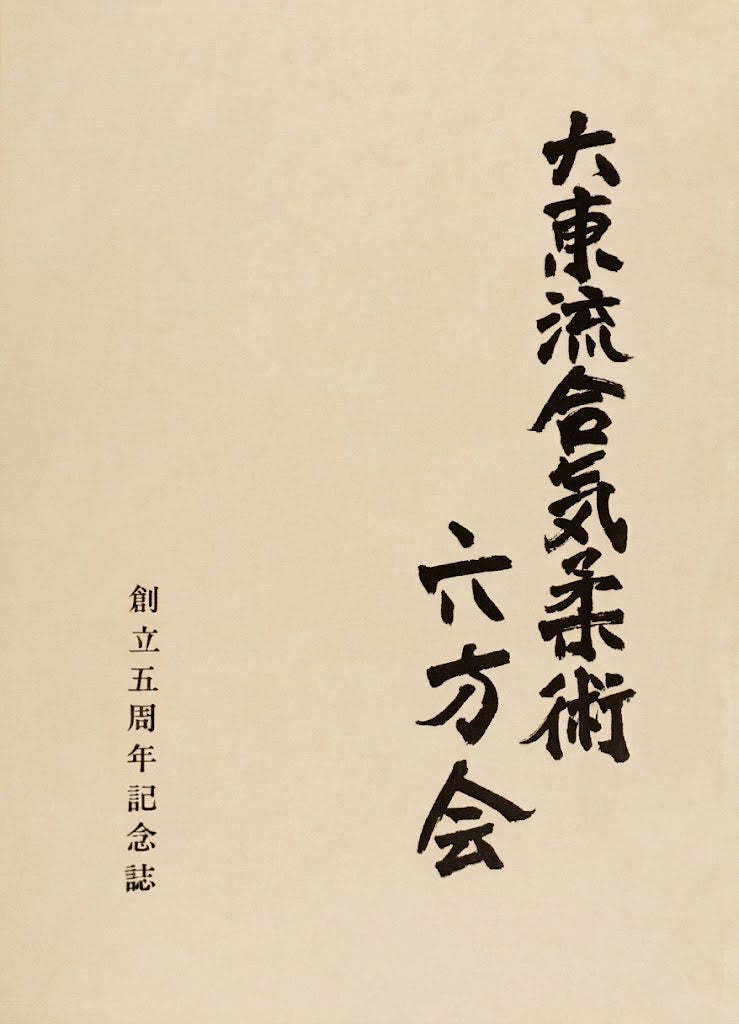 大東流合気柔術
六方会
創立五周年記念誌